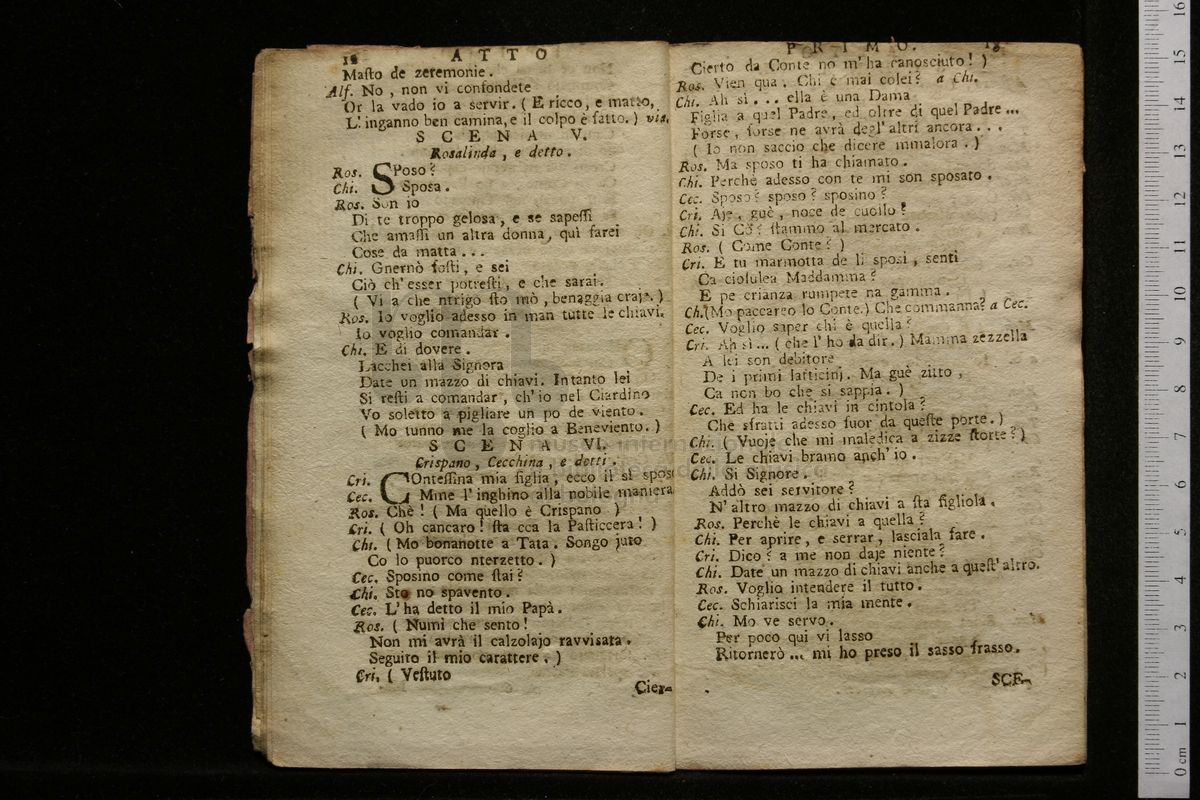 12 ATTO
Maſto de zeremonie.
Alf. No, non vi confondete
Or la vado io a servir. (E ricco, e matto,
L'inganno ben camina, e il colpo è fatto.) via.
SCENA V.
Rosalinda, e detto.
Ros. SPoso?
Chi. Sposa.
Ros. Son io
Di te troppo gelosa, e se sapeſſi
Che amaſſi un altra donna, quì farei
Cose da matta...
Chi. Gnernò foſti, e sei
Ciò ch'esser potreſti, e che sarai.
(Vi a che ntrigo ſto mò, benaggia craje.)
Ros. Io voglio adesso in man tutte le chiavi.
Io voglio comandar.
Chi. E di dovere.
Lacchei alla Signora
Date un mazzo di chiavi. Intanto lei
Si reſti a comandar, ch'io nel Giardino
Vo soletto a pigliare un po de viento.
(Mo tunno me la coglio a Beneviento.)
SCENA VI.
Crispano, Cecchina, e detti.
Cri. COnteſſina mia figlia, ecco il si spos
Cec. Mine l'inghino alla nobile maniera
Ros. Chè! (Ma quello è Crispano)
Cri. (Oh cancaro! ſta cca la Paſticcera!)
Chi. (Mo bonanotte a Tata. Songo juto
Co lo puorco nterzetto.)
Cec. Sposino come ſtai?
Chi. Sto no spavento.
Cec. L'ha detto il mio Papà.
Ros. (Numi che sento!
Non mi avrà il calzolajo ravvisata.
Seguito il mio carattere.)
Cri. (Veſtuto
Cier-
PRIMO. 13
Cierto da Conte no m'ha canosciuto!)
Ros. Vien qua. Chi è mai colei? a Chi.
Chi. Ah sì... ella è una Dama
Figlia a quel Padre, ed oltre di quel Padre...
Forse, forse ne avrà degl'altri ancora...
(Io non saccio che dicere mmalora.)
Ros. Ma sposo ti ha chiamato.
Chi. Perchè adesso con te mi son sposato.
Cec. Sposo? sposo? sposino?
Cri. Aje, guè, noce de cuollo?
Chi. Si Cò? ſtammo al mercato.
Ros. (Come Conte?)
Cri. E tu marmotta de li sposi, senti
Ca ciofulea Maddamma?
E pe crianza rumpete na gamma.
Ch. (Mo paccareo lo Conte.) Che commanna? a Cec.
Cec. Voglio saper chi è quella?
Cri. Ah sì... (che l'ho da dir.) Mamma zezzella
A lei son debitore
De i primi latticinj. Ma guè zitto,
Ca non bo che si sappia.)
Cec. Ed ha le chiavi in cintola?
Che sfratti adesso fuor da queſte porte.)
Chi. (Vuoje che mi maledica a zizze ſtorte?)
Cec. Le chiavi bramo anch'io.
Chi. Si Signore.
Addò sei servitore?
N'altro mazzo di chiavi a ſta figliola.
Ros. Perchè le chiavi a quella?
Chi. Per aprire, e serrar, lasciala fare.
Cri. Dico? a me non daje niente?
Chi. Date un mazzo di chiavi anche a queſt'altro.
Ros. Voglio intendere il tutto.
Cec. Schiarisci la mia mente.
Chi. Mo ve servo.
Per poco qui vi lasso
Ritornerò... mi ho preso il sasso frasso.
SCE-